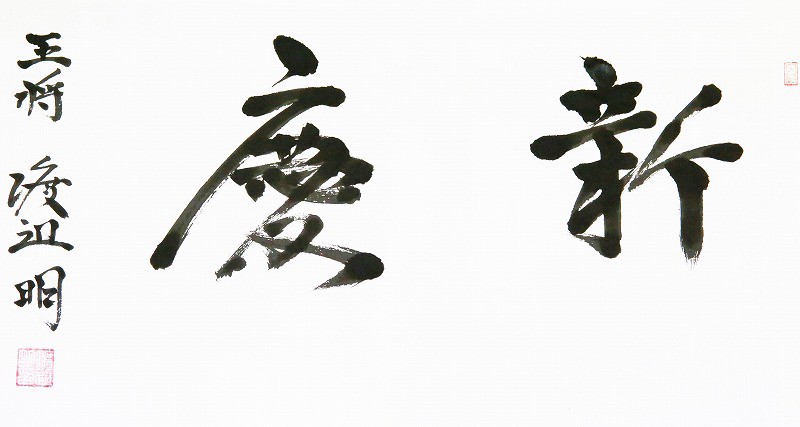 新慶
王将 渡辺明